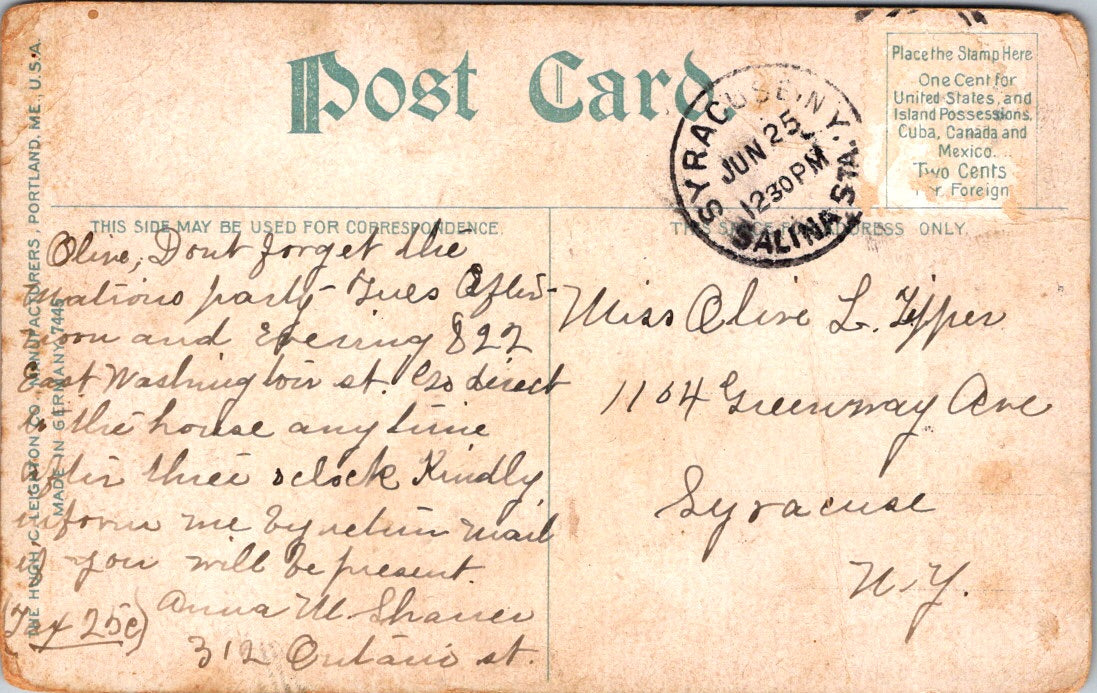 Post Card
SYRACUSE, N.Y.
JUN 25
1230 PM
SALINA STA.
Place the Stamp Here
One Cent for
United States, and
Island Possessions,
Cuba, Canada and
Mexico.
Two Cents
for Foreign
THIS SIDE MAY BE USED FOR CORRESPONDENCE.
THIS SIDE FOR ADDRESS ONLY.
THE HUGH C. LEIGHTON CO., MANUFACTURERS, PORTLAND, ME., U.S.A.
MADE IN GERMANY 7445
Olive, Dont forget the
party - Tues After-
noon and Evening 822
East Washington st. Go direct
to the house any time
after three oclock Kindly
inform me by return mail
if you will be present.
Anna M Shaver
(Tax 25¢)
312 Ontario st.
Miss Olive L. Tipper
1104 Greenway Ave
Syracuse
N.Y.